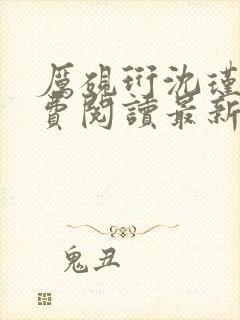 厲硯衍沈瑾
費閱讀最新
鬼丑